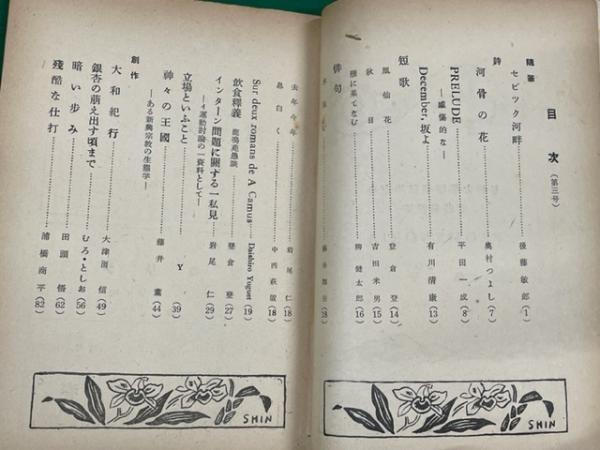 目次（第三号）
随筆
セビツク河畔………後藤敏郎（1）
詩
河骨の花………奥村つよし（7）
PRELUDE………平田一成（8）
―感傷的な―
December, 坂よ………有川清康（13）
短歌
鳳仙花………登倉登（14）
秋日………吉田米男（15）
柳健太郎（16）
俳句
去年今年………尾仁（18）
息白く………中西萩（18）
Sur deux romans de A Camus………Daishiro Yoguet（19）
飲食釋義………登倉登（27）
インターン問題に關する一私見………岩尾仁（29）
―イ運動討論の一資料として―
立場といふこと………Y（39）
神々の王國………藤井薫（44）
―ある新興宗教の生態学―
創作
大和紀行………大津須信（49）
銀杏の萠え出す頃まで………むろ・としお（56）
暗い歩み………田頭悟（62）
殘酷な仕打………浦橋商平（82）
SHIN
SHIN